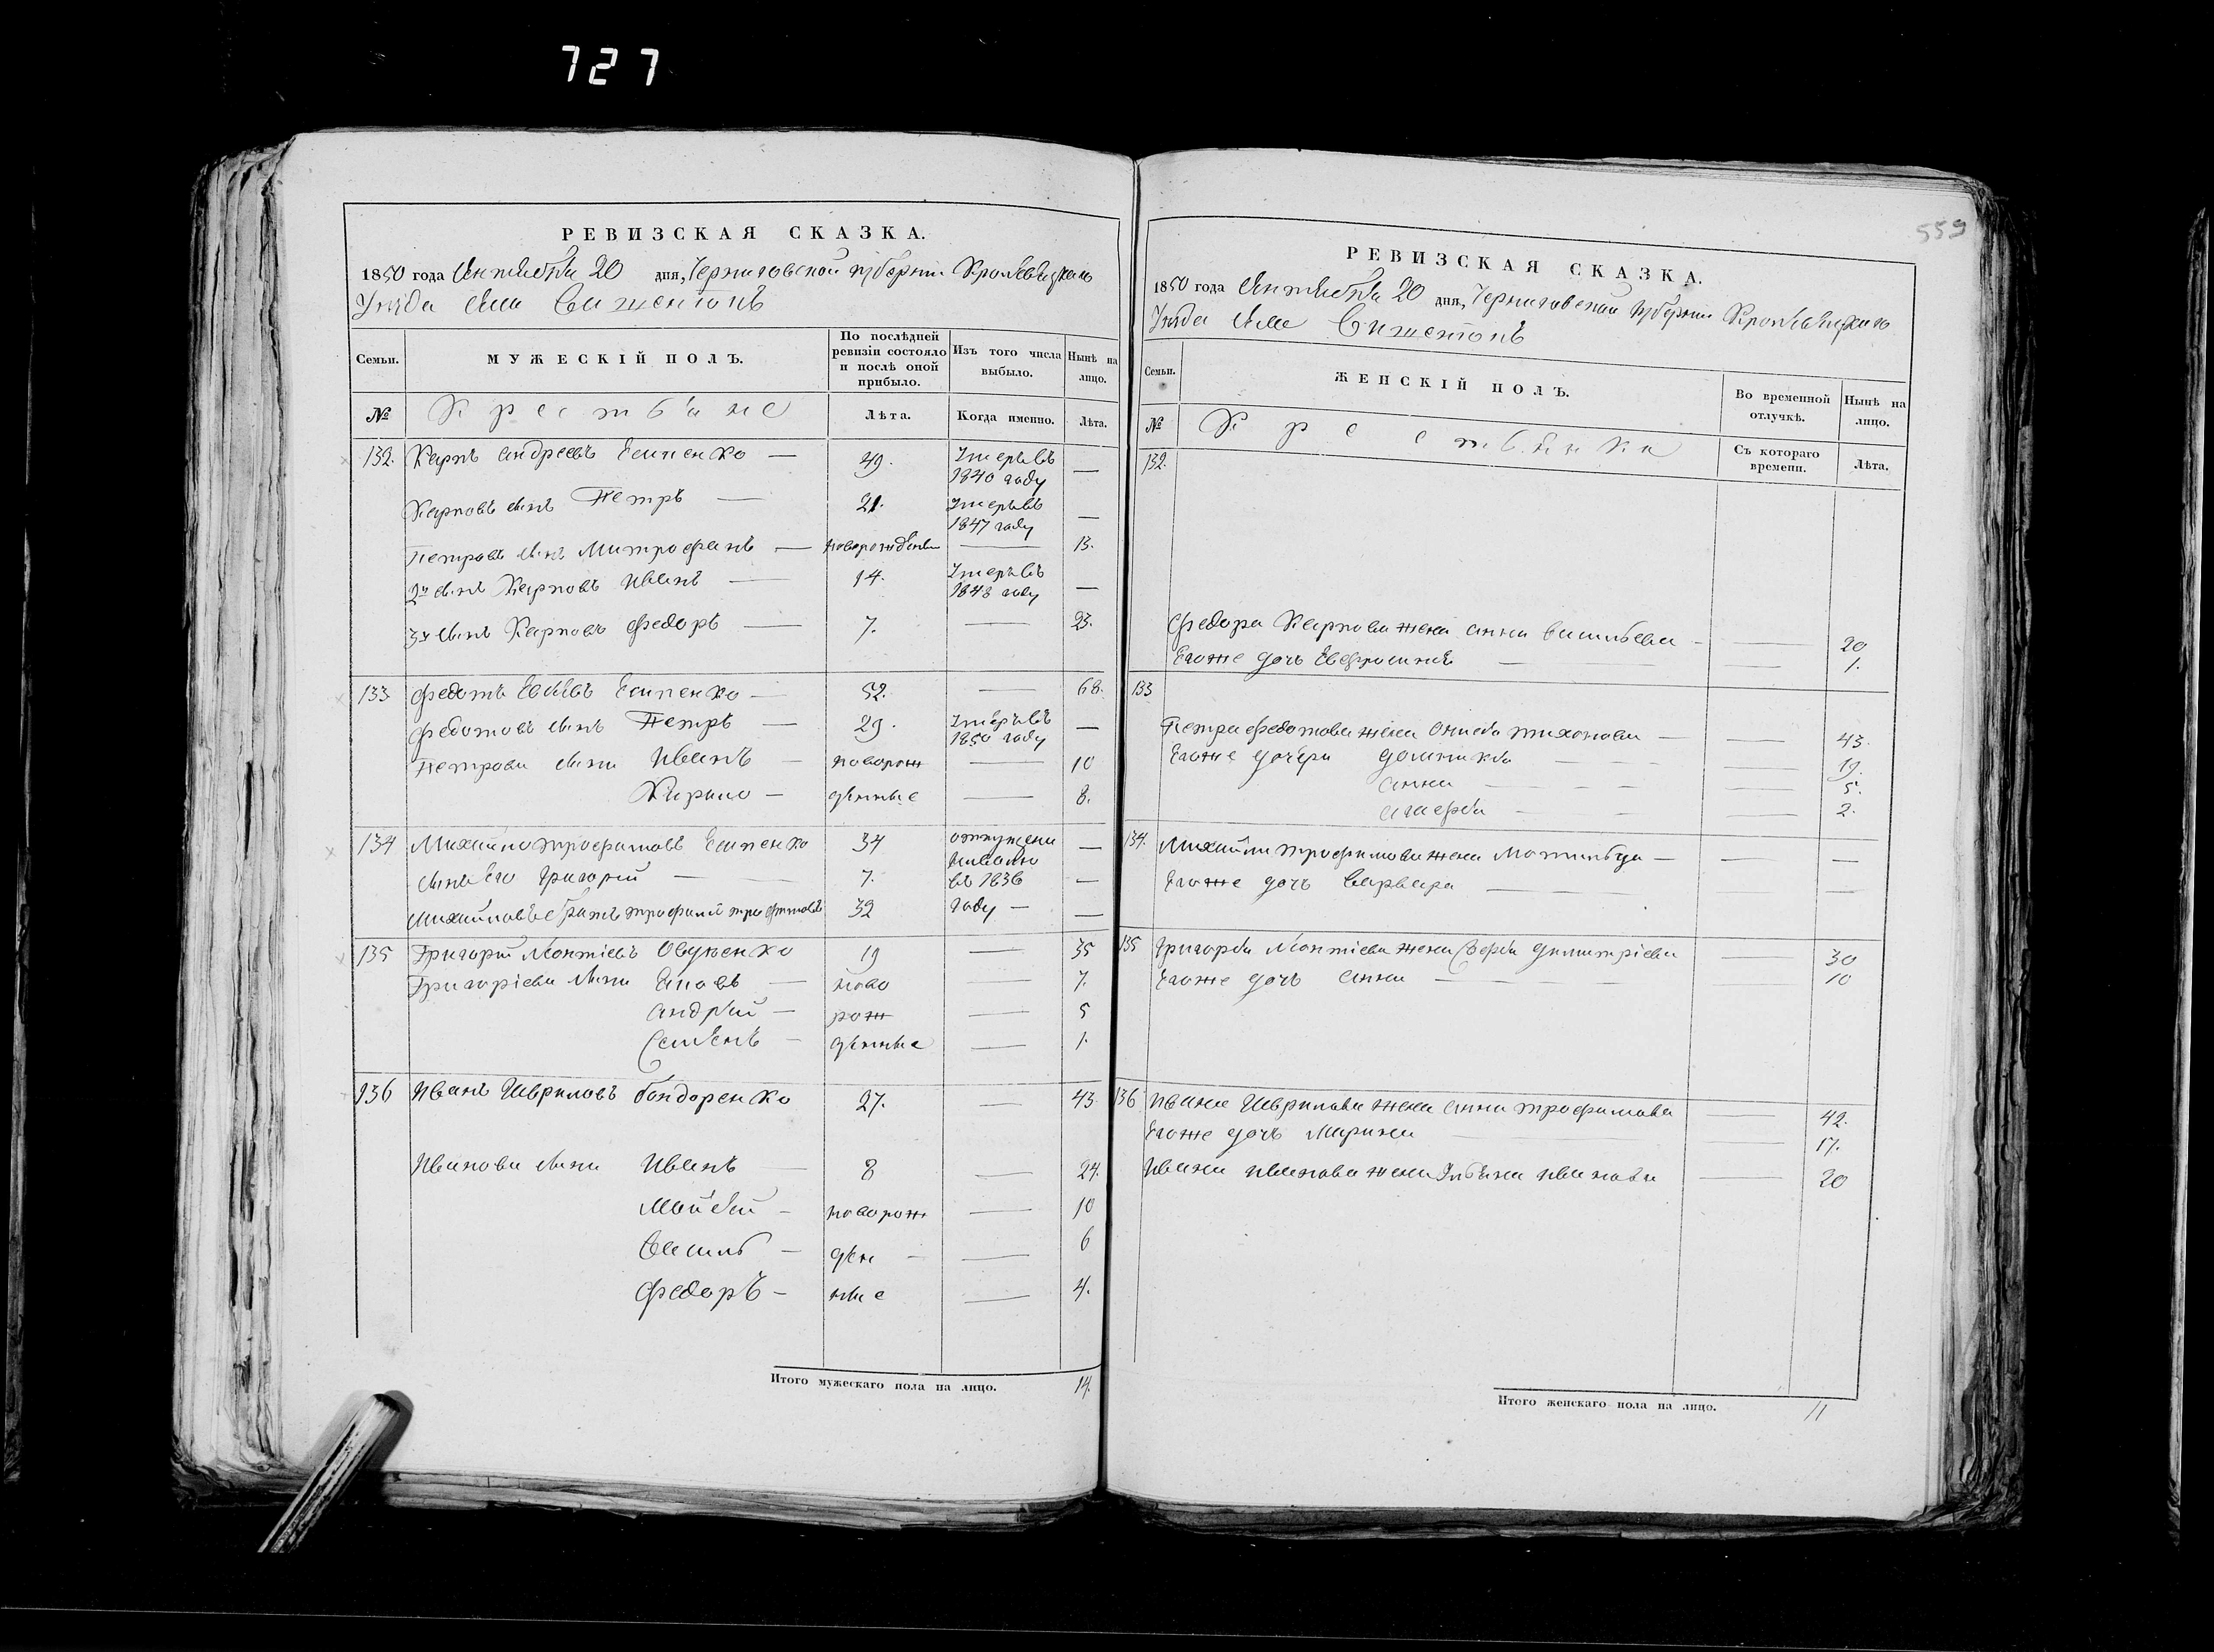 727
РЕВИЗСКАЯ СКАЗКА.
1850 года Октября 20 дня, Черниговской губернии Кролевецкаго
Уезда села
Семьи.
МУЖЕСКІЙ ПОЛЪ.
По послѣдней ревизіи состояло и послѣ оной прибыло.
Изъ того числа выбыло.
Нынѣ на лицо.
№
Крестьяне
Лѣта.
Когда именно.
Лѣта.
132. Карпъ Андреевъ Есипенко — 49. Умеръ въ 1840 году —
Карповъ сынъ Петръ — 21. Умеръ въ 1847 году —
Петровъ сынъ Митрофанъ — новорожденъ — 13.
2й сынъ Карповъ Иванъ — 14. Умеръ въ 1848 году —
3й сынъ Карповъ Федоръ — 7. — 23.
133 Федотъ Есипенко — 52. — 68.
Федотовъ сынъ Петръ — 29. Умеръ въ 1850 году —
Петровы сыны Иванъ — новорож — 10
Кирило — денные — 8.
134 Михайло Трофимовъ Есипенко 34 —
сынъ его Григорий — 7. въ 1836 —
Михайловъ братъ Трофимовъ 32 году — —
135 Григорій Леонтіевъ 19 — 35
Григоріевы сыны — ново — 7.
Андрей — рож — 5
Семенъ — денные — 1.
136 Иванъ Гавриловъ Бондоренко 27. — 43.
Ивановы сыны Иванъ — 8 — 24.
Мойсей — новорож — 10
Василь — ден — — 6
Федоръ — ные — 4.
Итого мужескаго пола на лицо. 14.
559
РЕВИЗСКАЯ СКАЗКА.
1850 года Октября 20 дня, Черниговской губернии Кролевецкаго
Уезда села
Семьи.
ЖЕНСКІЙ ПОЛЪ.
Во временной отлучкѣ.
Нынѣ на лицо.
№
Крестьянки
Съ котораго времени.
Лѣта.
132.
Федора Карпова жена Анна Васильева — — 20
Его же дочь Евфросинія — — 1.
133
Петра Федотова жена Тихонова — — 43.
Его же дочери Домникія — — 19.
Анна — — 5.
Агафія — — 2.
134. Михайли Трофимова жена — — —
Его же дочь Варвара — — —
135 Григорія Леонтіева жена Димитріева — 30
Его же дочь Анна — — 10
136 Ивана Гаврилова жена Анна Трофимова — 42.
Его же дочь Марина — — 17.
Ивана Иванова жена Ульяна Иванова — 20
Итого женскаго пола на лицо. 11